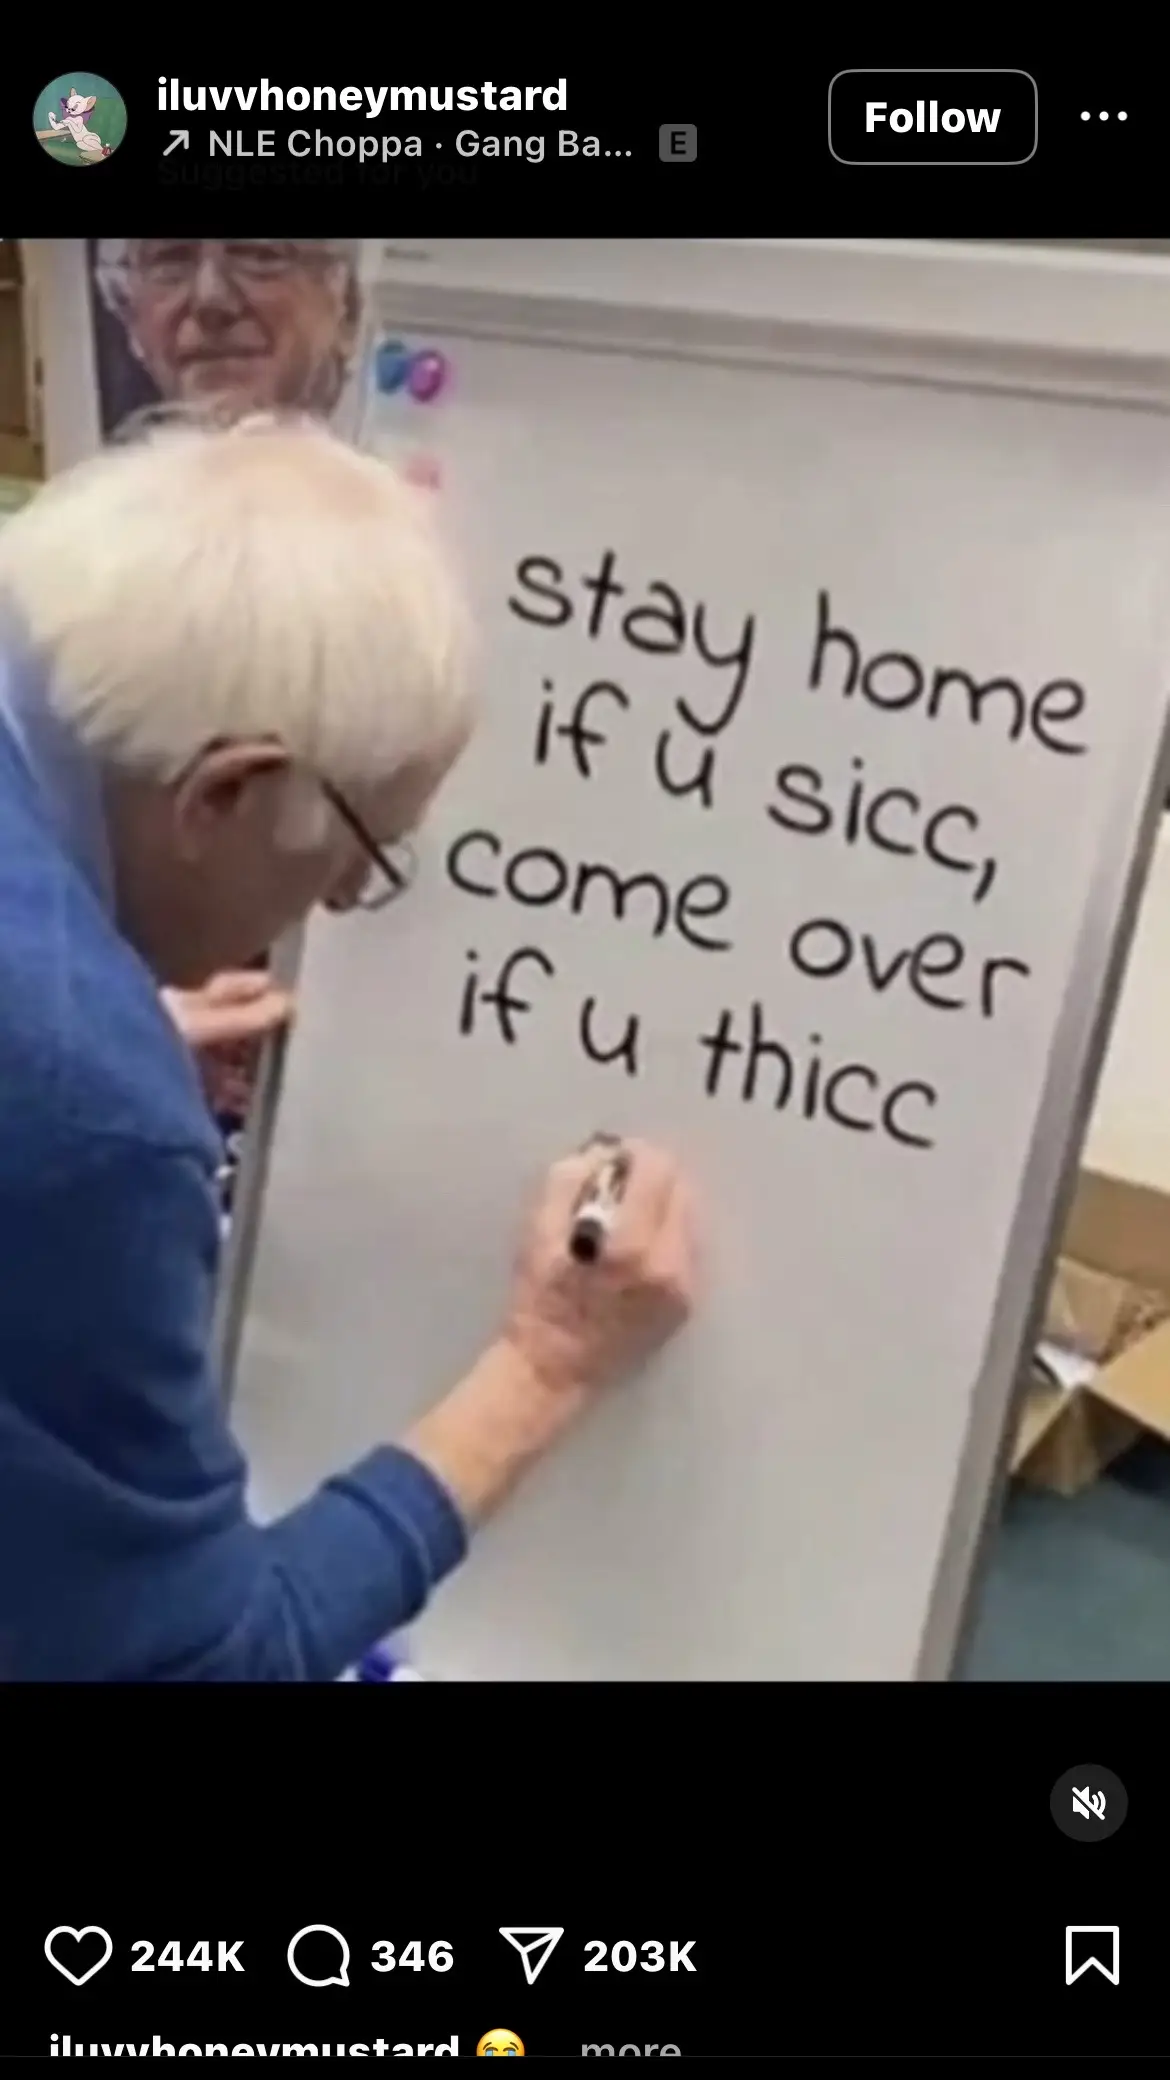 iluvvhoneymustard
NLE Choppa · Gang Ba... E
Follow
Suggested for you
stay home
if u sicc,
come over
if u thicc
244K 346 203K
iluvvhoneymustard 😭 more